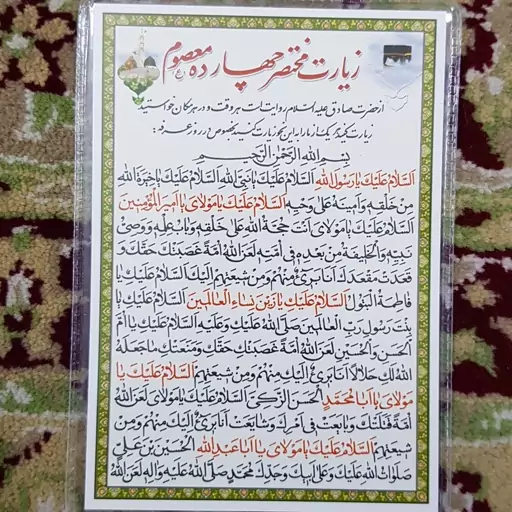 زیارت مختصر چهارده معصوم (ع)
از حضرت صادق علیه السلام روایت است هر وقت و در هر مکان خواستید
زیارت کنید هر یک از ما را به این نحو زیارت کنید بخصوص در روز عرفه:
بِسْمِ اللهِ الرَّحْمٰنِ الرَّحیمِ
اَلسَّلامُ عَلَیْكَ یا رَسُولَ اللهِ اَلسَّلامُ عَلَیْكَ یا نَبِیَّ اللهِ اَلسَّلامُ عَلَیْكَ یا خِیَرَةَ اللهِ
مِنْ خَلْقِهِ وَ اَمینَهُ عَلیٰ وَحْیِهِ اَلسَّلامُ عَلَیْكَ یا مَوْلایَ یا اَمیرَ الْمُؤْمِنینَ
اَلسَّلامُ عَلَیْكَ یا مَوْلایَ اَنْتَ حُجَّةُ اللهِ عَلیٰ خَلْقِهِ وَ بابُ عِلْمِهِ وَ وَصِیُّ
نَبِیِّهِ وَ الْخَلیفَةُ مِنْ بَعْدِهِ فی اُمَّتِهِ لَعَنَ اللهُ اُمَّةً غَصَبَتْكَ حَقَّكَ وَ
قَعَدَتْ مَقْعَدَكَ اَنَا بَریءٌ مِنْهُمْ وَ مِنْ شیعَتِهِمْ اِلَیْكَ اَلسَّلامُ عَلَیْكِ یا
فاطِمَةُ الْبَتُولُ اَلسَّلامُ عَلَیْكِ یا زَیْنَ نِساءِ الْعالَمینَ اَلسَّلامُ عَلَیْكِ یا
بِنْتَ رَسُولِ رَبِّ الْعالَمینَ صَلَّی اللهُ عَلَیْكِ وَ عَلَیْهِ اَلسَّلامُ عَلَیْكِ یا اُمَّ
الْحَسَنِ وَ الْحُسَیْنِ لَعَنَ اللهُ اُمَّةً غَصَبَتْكِ حَقَّكِ وَ مَنَعَتْكِ ما جَعَلَهُ
اللهُ لَكِ حَلالًا اَنَا بَریءٌ اِلَیْكِ مِنْهُمْ وَ مِنْ شیعَتِهِمْ اَلسَّلامُ عَلَیْكَ یا
مَوْلایَ یا اَبا مُحَمَّدٍ الْحَسَنَ الزَّکِیَّ اَلسَّلامُ عَلَیْكَ یا مَوْلایَ لَعَنَ اللهُ
اُمَّةً قَتَلَتْكَ وَ بایَعَتْ فی اَمْرِكَ وَ شایَعَتْ اَنَا بَریءٌ اِلَیْكَ مِنْهُمْ وَ مِنْ
شیعَتِهِمْ اَلسَّلامُ عَلَیْكَ یا مَوْلایَ یا اَبا عَبْدِ اللهِ الْحُسَیْنَ بْنَ عَلِیٍّ
صَلَواتُ اللهِ عَلَیْكَ وَ عَلیٰ اَبیكَ وَ جَدِّكَ مُحَمَّدٍ صَلَّی اللهُ عَلَیْهِ وَ الِهِ لَعَنَ اللهُ